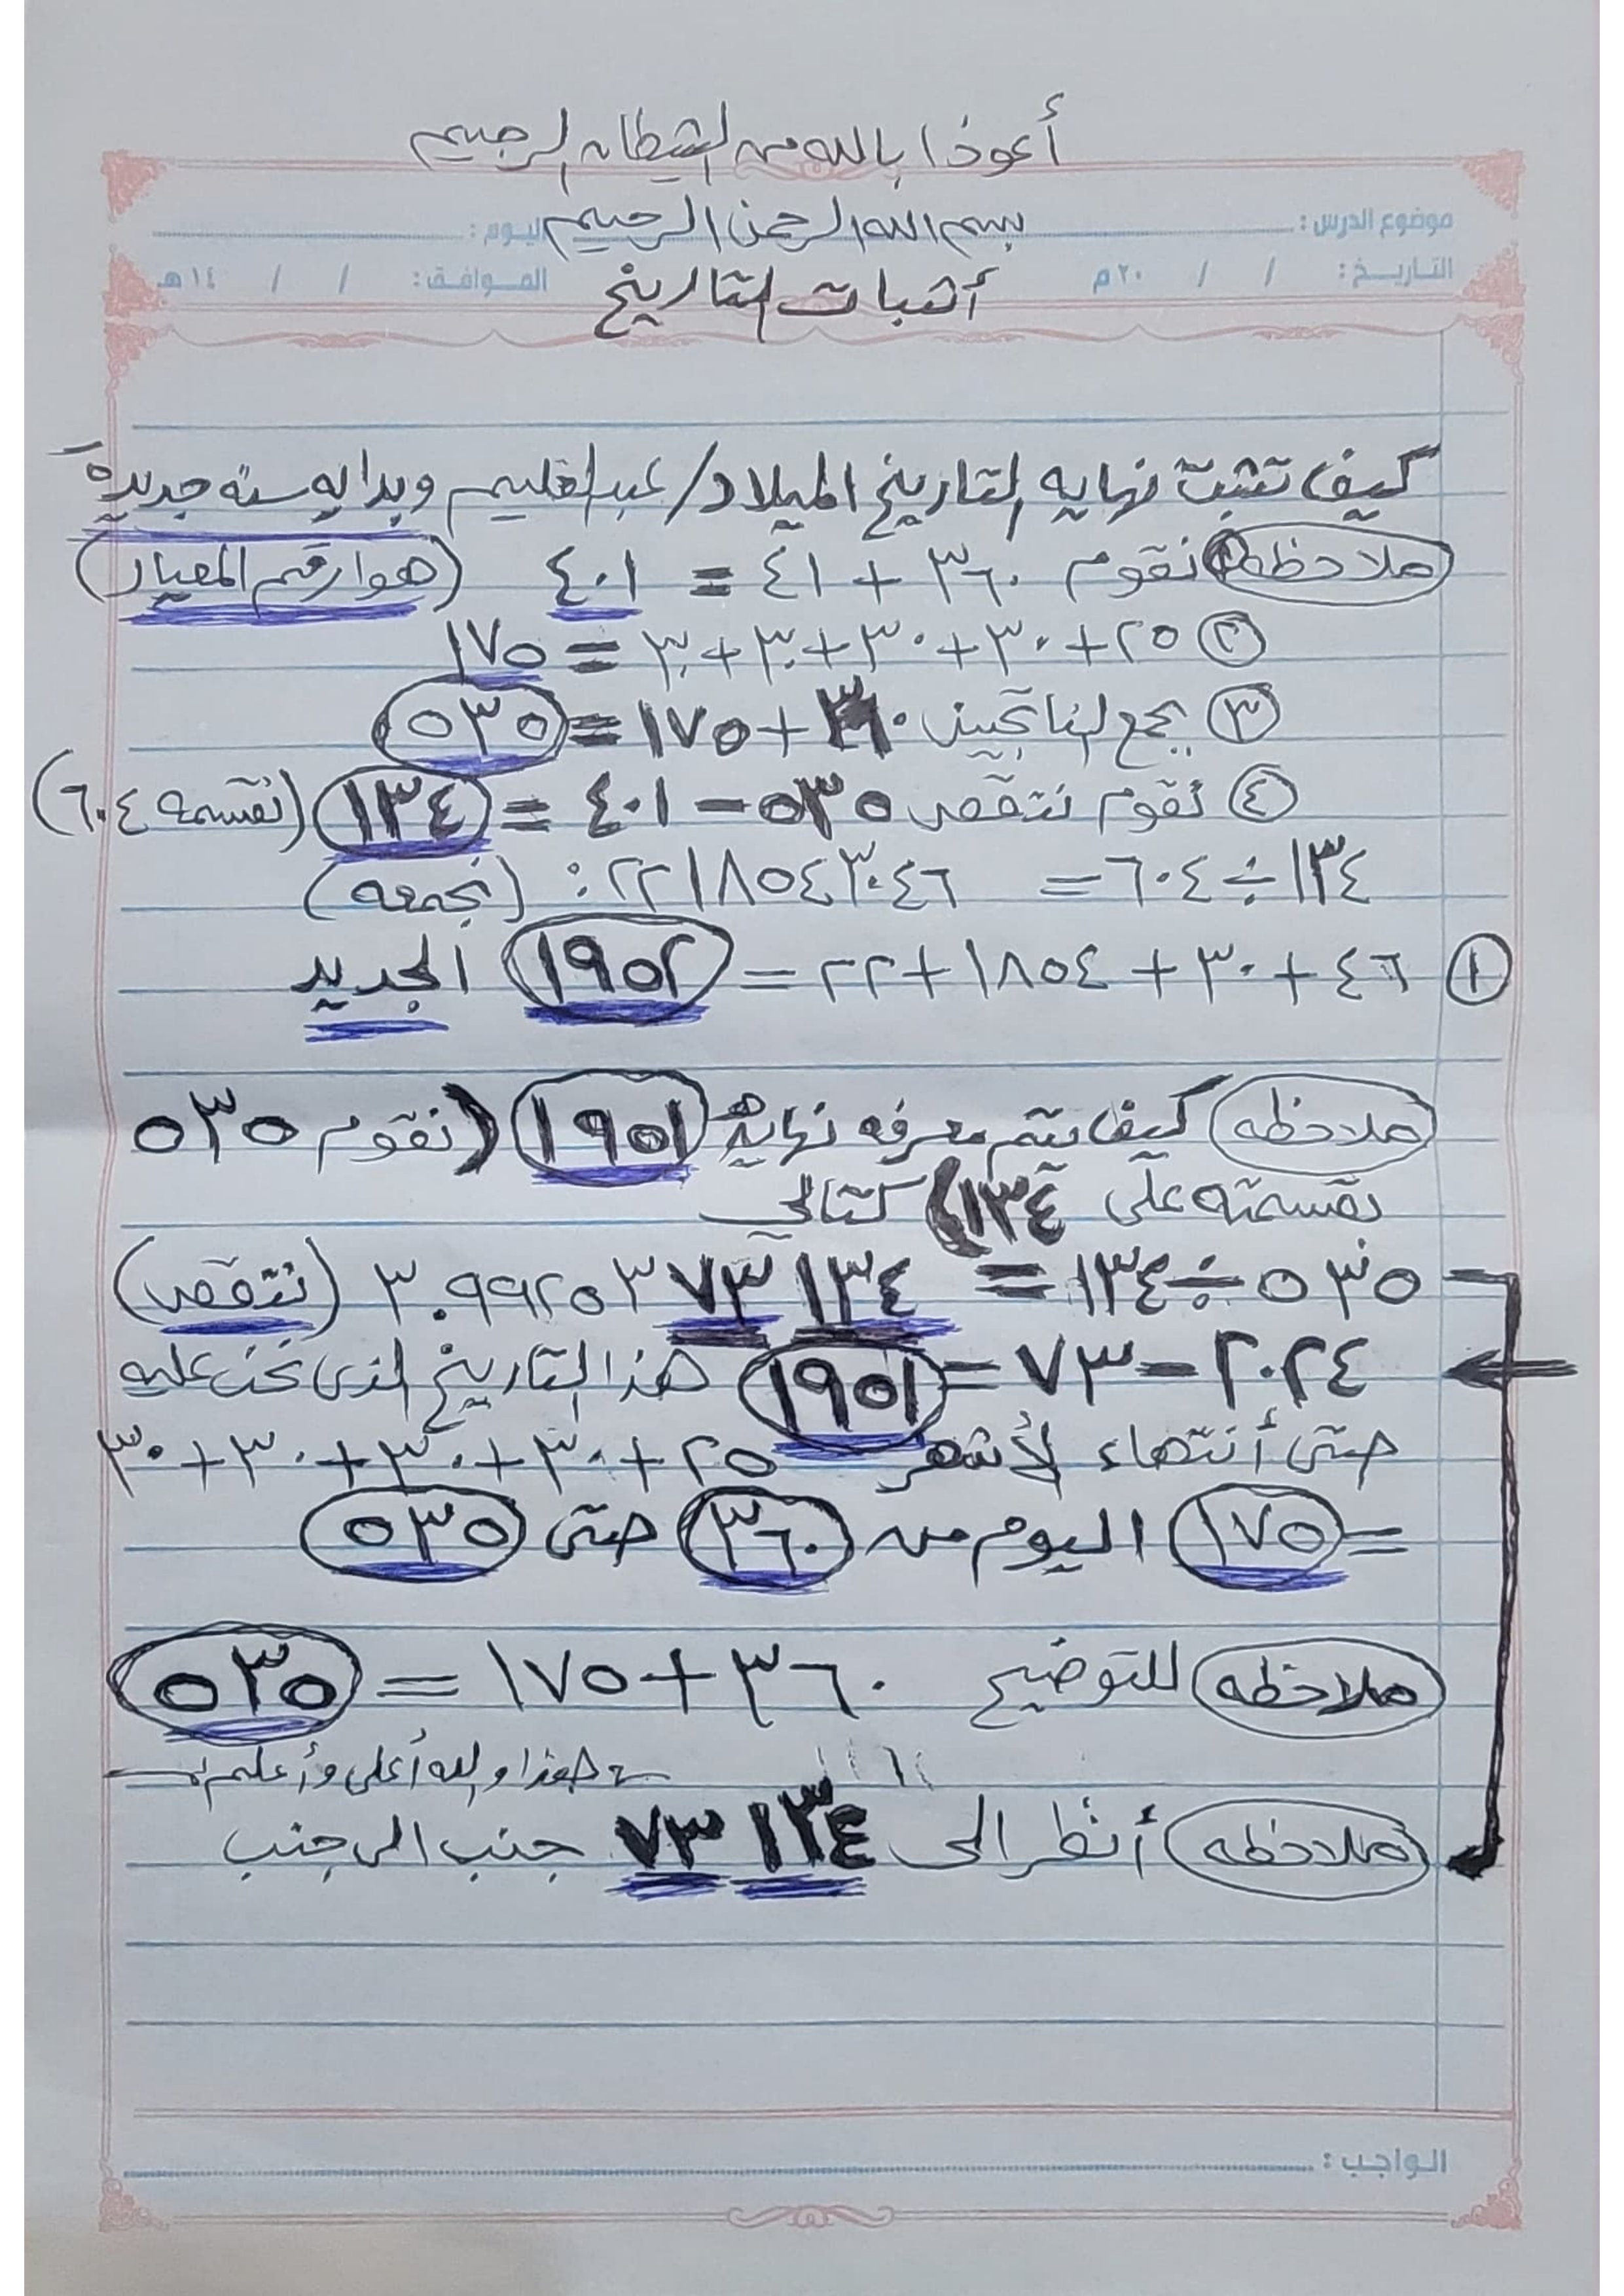 أعوذا بالله من الشيطان الرجيم
موضوع الدرس : بسم الله الرحمن الرحيم اليوم :
التاريخ : / / ٢٠م أثبات التاريخ الموافق : / / ١٤هـ
كيف تثبت نهايه التاريخ الميلاد/ عبدالعليم وبدايه سنه جديدة
ملاحظه ① نقوم ٣٦٠ + ٤١ = ٤٠١ (هوا رقم المعيار)
② ٢٥+٣٠+٣٠+٣٠+٣٠ = ١٧٥
③ بجمع الناتجين ٣٦٠+١٧٥=٥٣٥
④ نقوم نتقص ٥٣٥-٤٠١ = ١٣٤ (نقسمه ٦٠٤)
١٣٤÷٦٠٤ = ٢٢١٨٥٤٣٠٤٦: (نجمعه)
① ٤٦+٣٠+١٨٥٤+٢٢= ١٩٥٢ الجديد
ملاحظه كيف يتم معرفه نهاية ١٩٥١ (نقوم ٥٣٥
بقسمته على ١٣٤) كتالي
٥٣٥÷١٣٤ = ٣.٩٩٢٥٣٧٣١٣٤ (نتقص)
٢٠٢٤-٧٣=١٩٥١ هذا التاريخ الذى نحن عليه
حتى أنتهاء لأشهر ٢٥+٣٠+٣٠+٣٠+٣٠
= ١٧٥ اليوم من ٣٦٠ حتى ٥٣٥
ملاحظه للتوضيح ٣٦٠+١٧٥ = ٥٣٥
هذا والله أعلى وأعلم
ملاحظه أنظر الى ٧٣١٣٤ جنب الى جنب
الواجب :